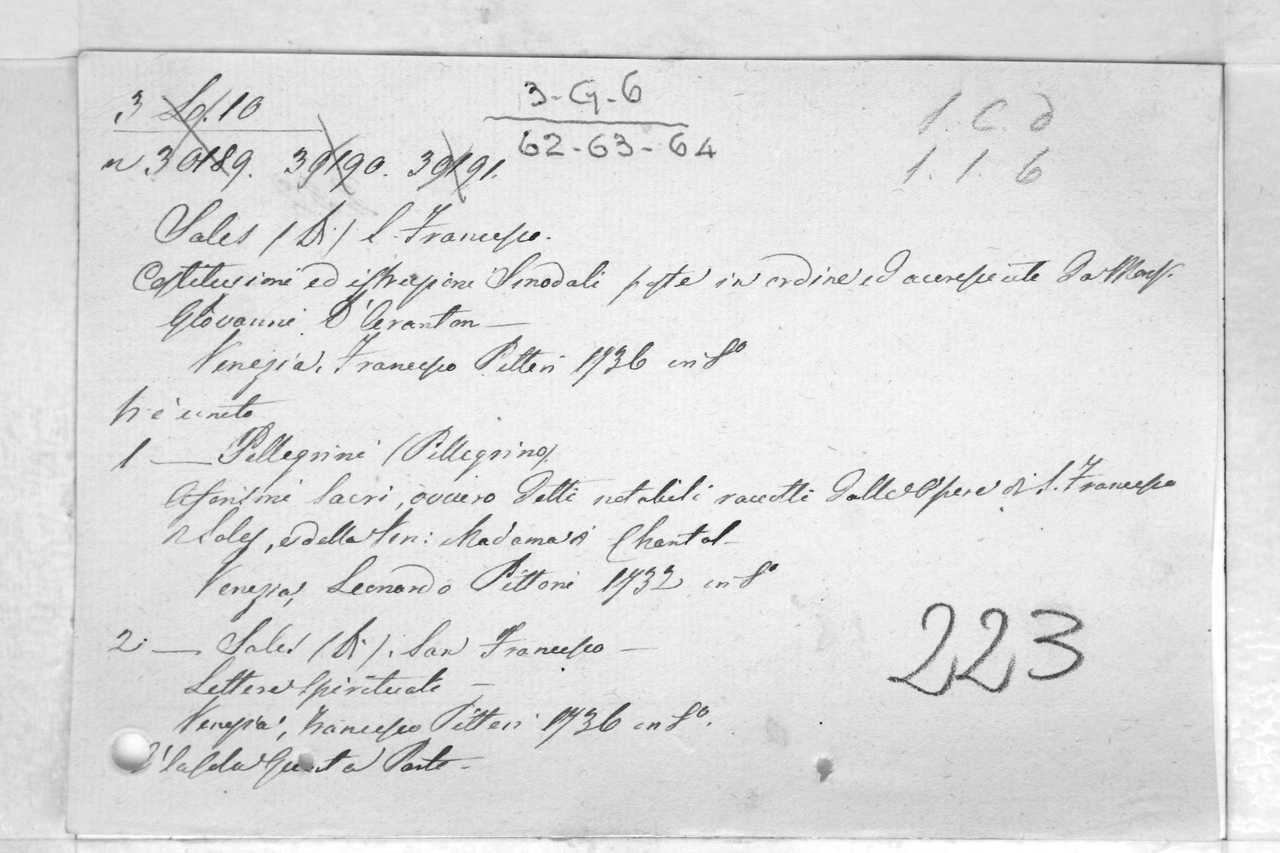 3 Lq. 10
3-G-6
1. C. d
n 30189. 39190. 39191.
62-63-64
1. 1. 6
Sales (Di) S. Francesco.
Costituzioni ed istruzioni Sinodali poste in ordine ed accresciute da Mons.
Giovanni D'Aranton —
Venezia, Francesco Pitteri 1736 in 8º
Vi è unito
1 — Pellegrini (Pellegrino)
Aforismi Sacri, ovvero detti notabili raccolti dalle Opere di S. Francesco
di Sales, e della Ven: Madama di Chantal —
Venezia, Leonardo Pittoni 1732 in 8º
2 — Sales (Di). San Francesco —
Lettere Spirituali —
Venezia, Francesco Pitteri 1736 in 8º.
È la sola Quinta Parte —
223